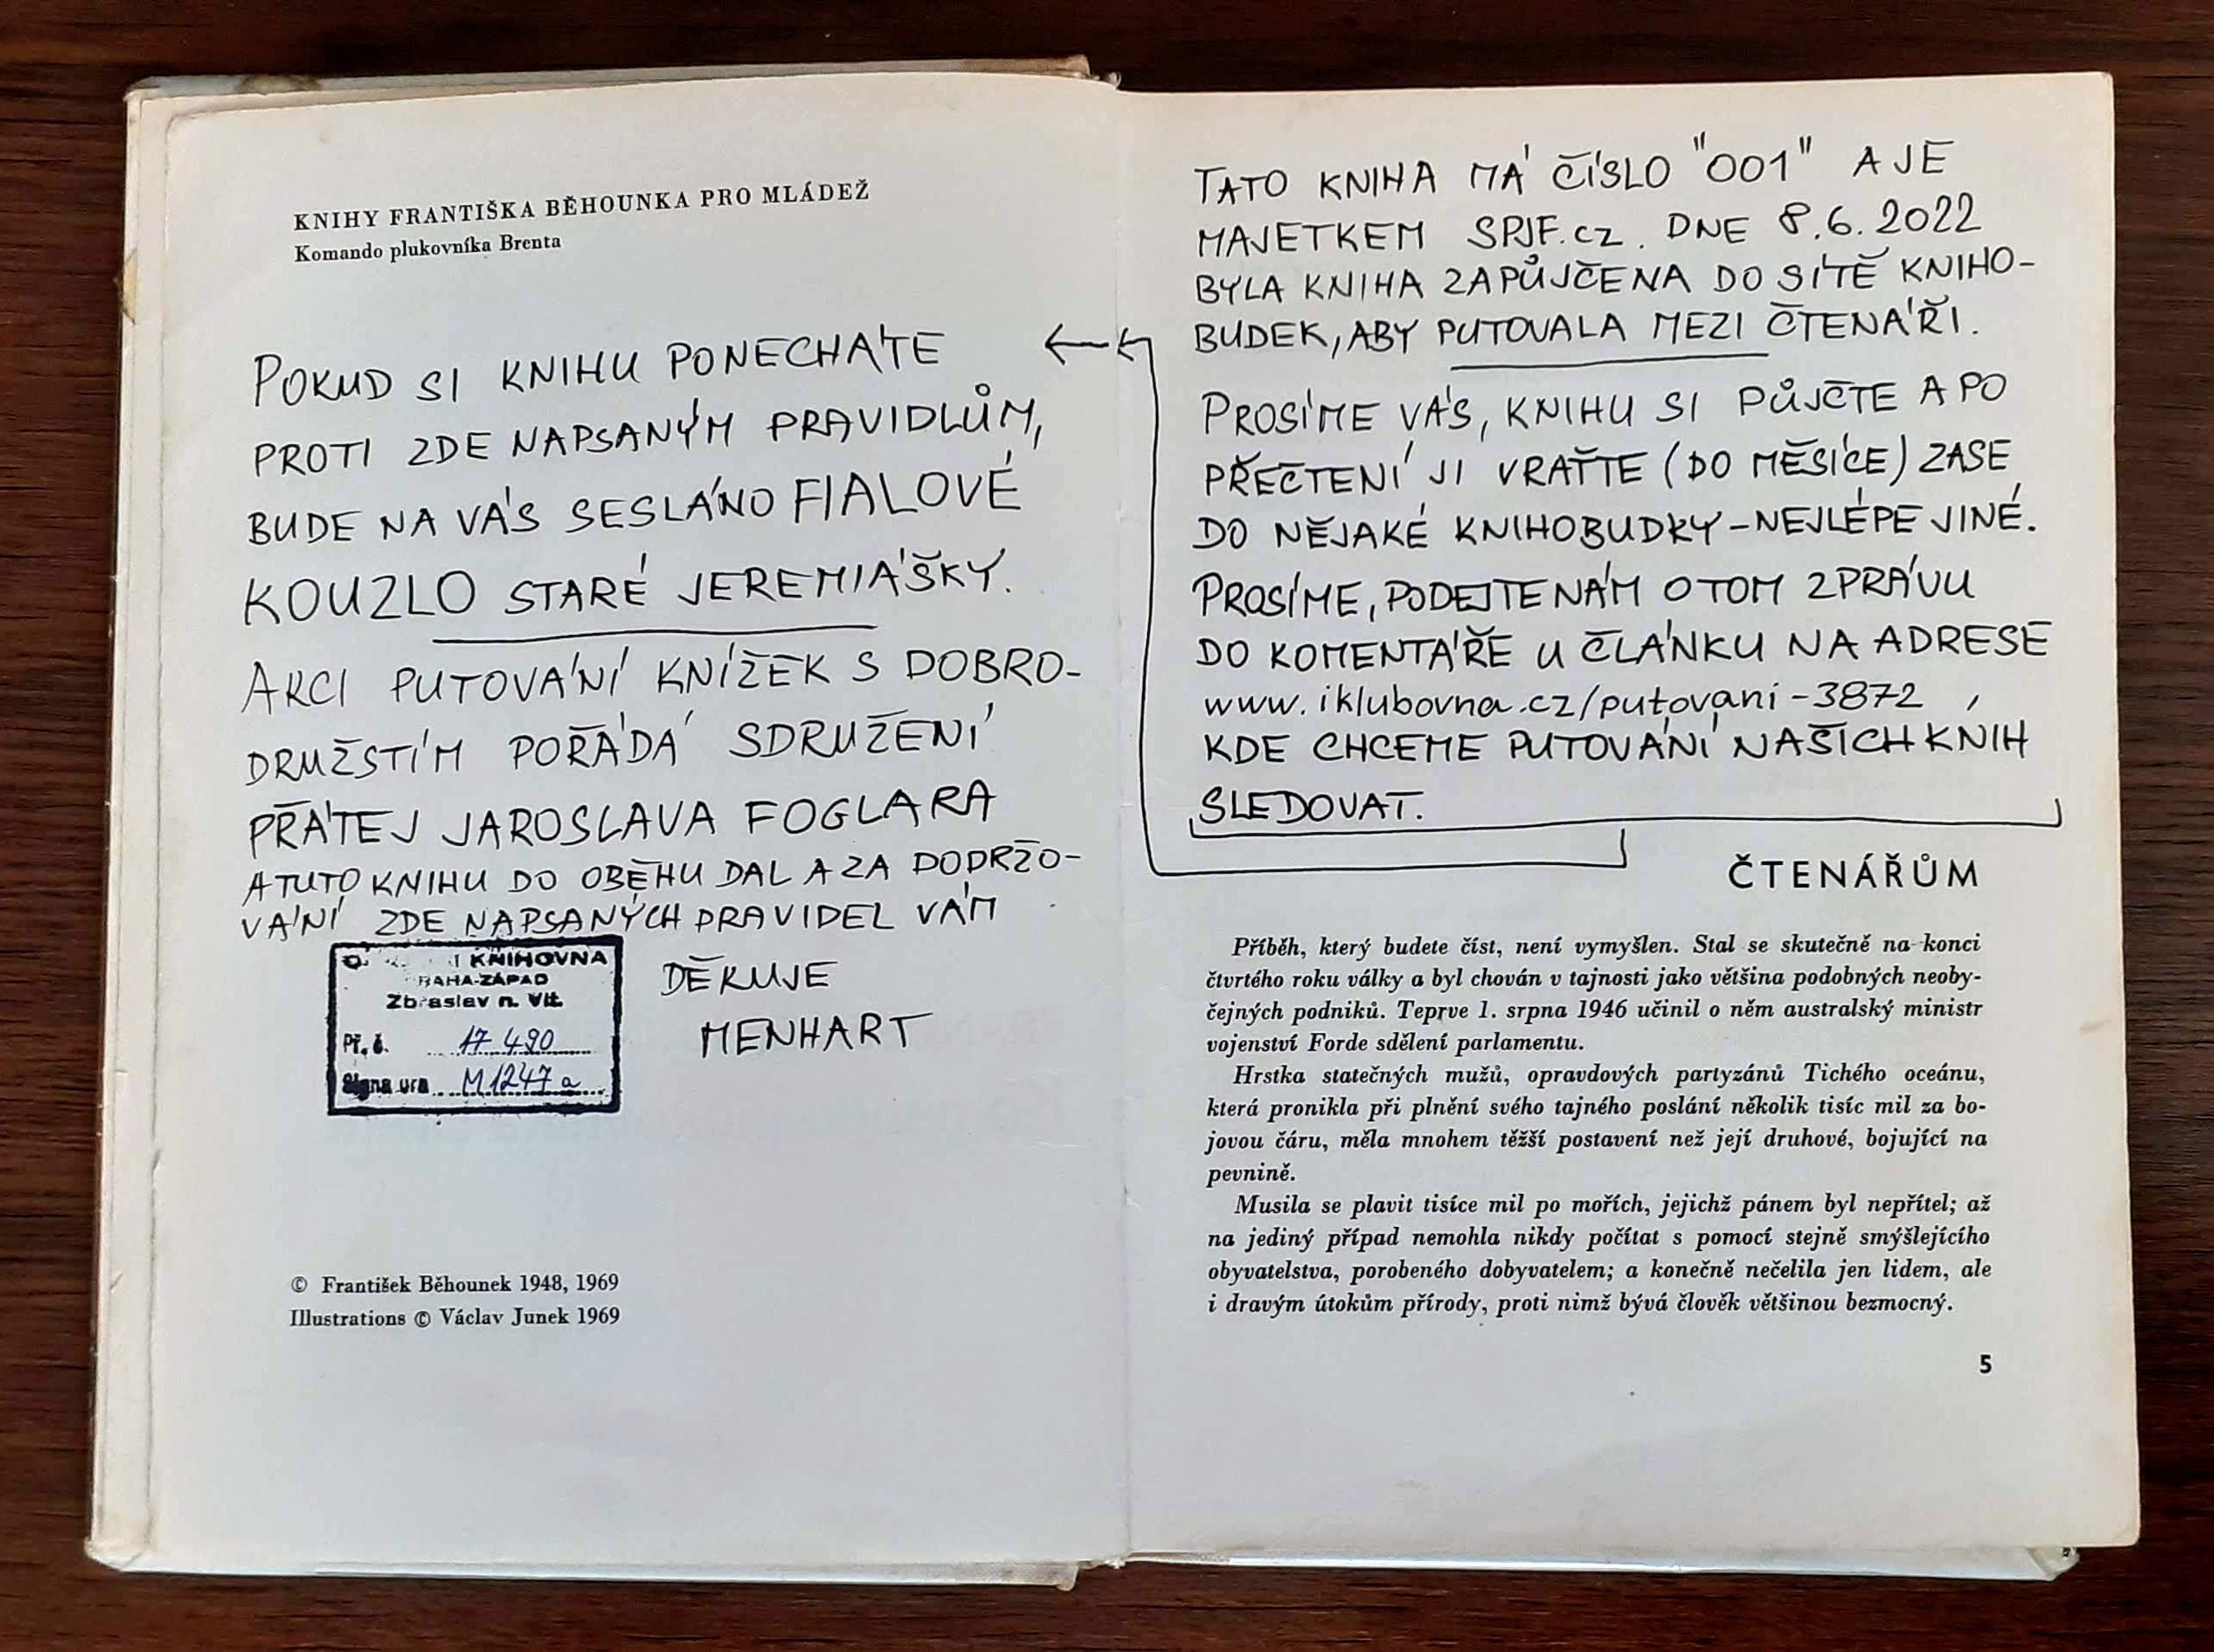 KNIHY FRANTIŠKA BĚHOUNKA PRO MLÁDEŽ
Komando plukovníka Brenta
POKUD SI KNIHU PONECHÁTE
PROTI ZDE NAPSANÝM PRAVIDLŮM,
BUDE NA VÁS SESLÁNO FIALOVÉ
KOUZLO STARÉ JEREMIÁŠKY.
AKCI PUTOVÁNÍ KNÍŽEK S DOBRO-
DRUŽSTÍM POŘÁDÁ SDRUŽENÍ
PŘÁTEJ JAROSLAVA FOGLARA
A TUTO KNIHU DO OBĚHU DAL A ZA DODRŽO-
VÁNÍ ZDE NAPSANÝCH PRAVIDEL VÁM
DĚKUJE
MENHART
KNIHOVNA
RAHA-ZÁPAD
Zbraslav n. Vlt.
Př. č. 17 490
Signa ura M 1247 a
© František Běhounek 1948, 1969
Illustrations © Václav Junek 1969
TATO KNIHA MÁ ČÍSLO "001" A JE
MAJETKEM SPJF.cz. DNE 8.6.2022
BYLA KNIHA ZAPŮJČENA DO SÍTĚ KNIHO-
BUDEK, ABY PUTOVALA MEZI ČTENÁŘI.
PROSÍME VÁS, KNIHU SI PŮJČTE A PO
PŘEČTENÍ JI VRAŤTE (DO MĚSÍCE) ZASE
DO NĚJAKÉ KNIHOBUDKY - NEJLÉPE JINÉ.
PROSÍME, PODEJTE NÁM O TOM ZPRÁVU
DO KOMENTÁŘE U ČLÁNKU NA ADRESE
www.iklubovna.cz/putovani-3872 ,
KDE CHCEME PUTOVÁNÍ NAŠICH KNIH
SLEDOVAT.
ČTENÁŘŮM
Příběh, který budete číst, není vymyšlen. Stal se skutečně na konci
čtvrtého roku války a byl chován v tajnosti jako většina podobných neoby-
čejných podniků. Teprve 1. srpna 1946 učinil o něm australský ministr
vojenství Forde sdělení parlamentu.
Hrstka statečných mužů, opravdových partyzánů Tichého oceánu,
která pronikla při plnění svého tajného poslání několik tisíc mil za bo-
jovou čáru, měla mnohem těžší postavení než její druhové, bojující na
pevnině.
Musila se plavit tisíce mil po mořích, jejichž pánem byl nepřítel; až
na jediný případ nemohla nikdy počítat s pomocí stejně smýšlejícího
obyvatelstva, porobeného dobyvatelem; a konečně nečelila jen lidem, ale
i dravým útokům přírody, proti nimž bývá člověk většinou bezmocný.
5